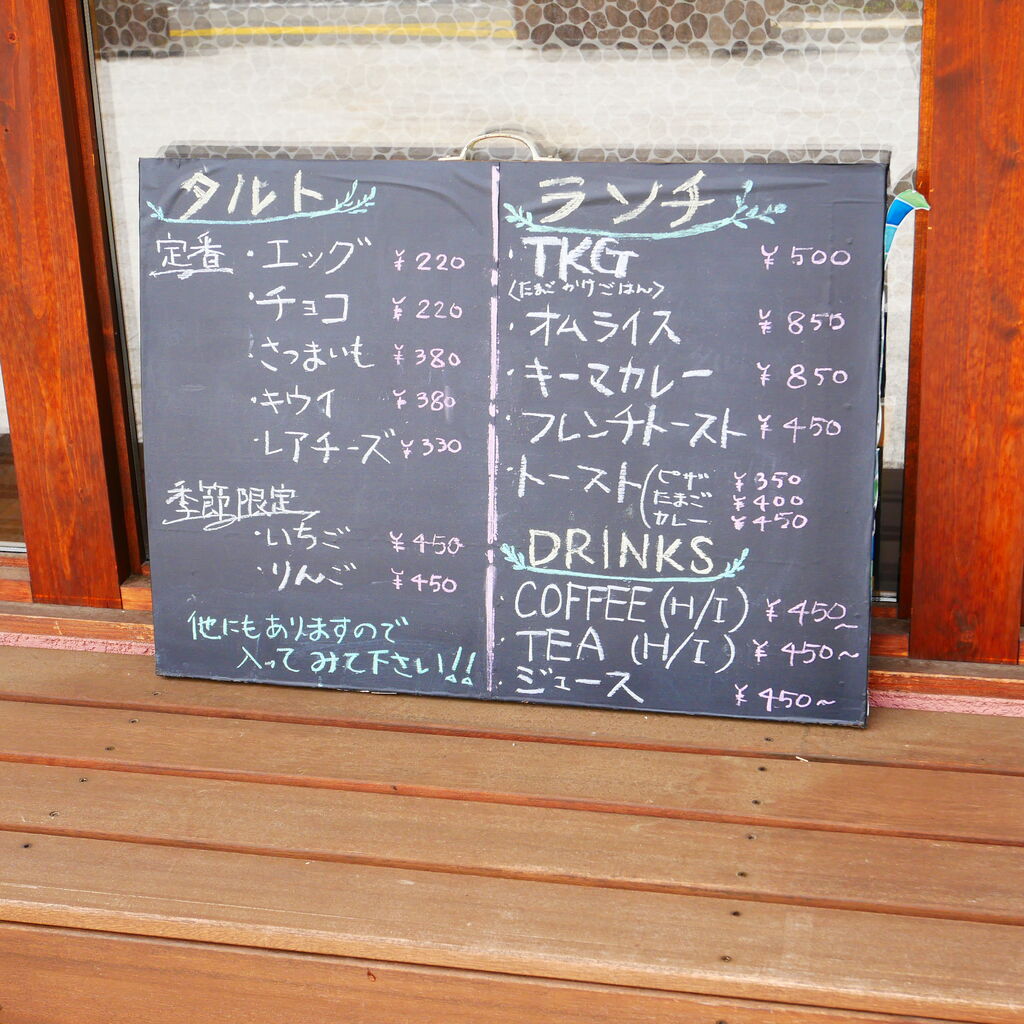 タルト
定番 ・エッグ ¥220
・チョコ ¥220
・さつまいも ¥380
・キウイ ¥380
・レアチーズ ¥330
季節限定
・いちご ¥450
・りんご ¥450
他にもありますので
入ってみて下さい!!
ランチ
・TKG ¥500
(たまごかけごはん)
・オムライス ¥850
・キーマカレー ¥850
・フレンチトースト ¥450
・トースト(ピザ ¥350
たまご ¥400
カレー ¥450
DRINKS
・COFFEE (H/I) ¥450~
・TEA (H/I) ¥450~
・ジュース ¥450~